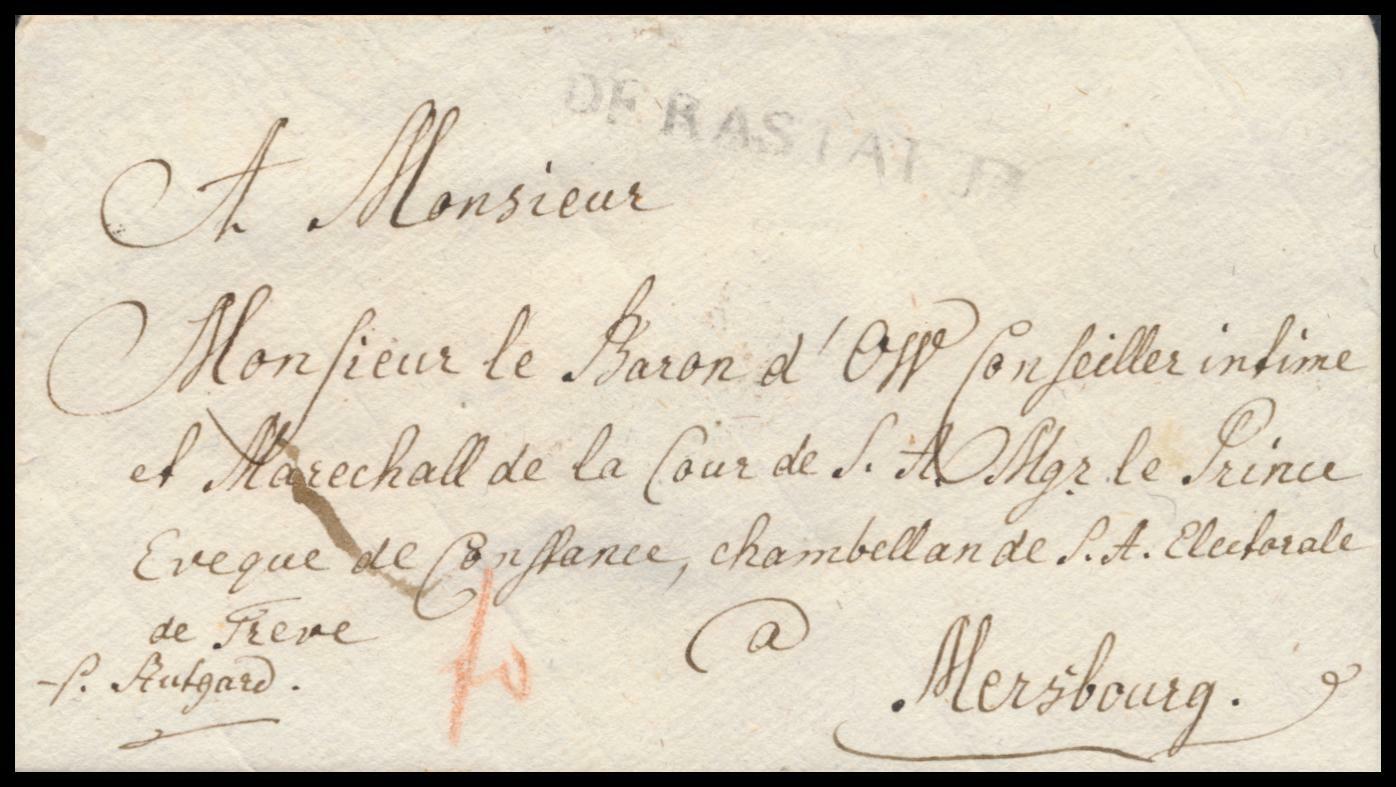 DE RASTATT
A Monsieur
Monsieur le Baron d'OW Conseiller intime
et Marechall de la Cour de S. A. Mgr. le Prince
Eveque de Constance, chambellan de S. A. Electorale
de Treve
a
p. Stutgard.
Mersbourg.